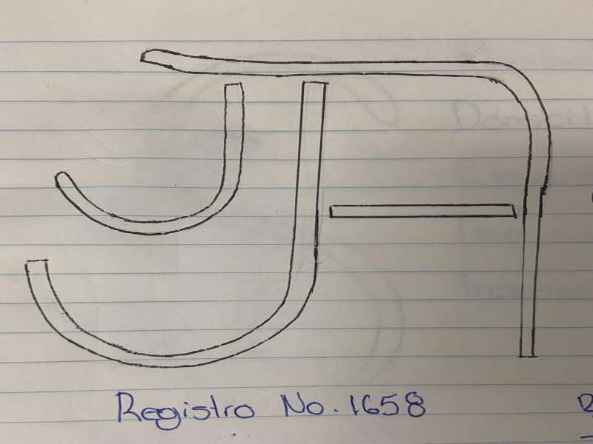 Registro No. 1658